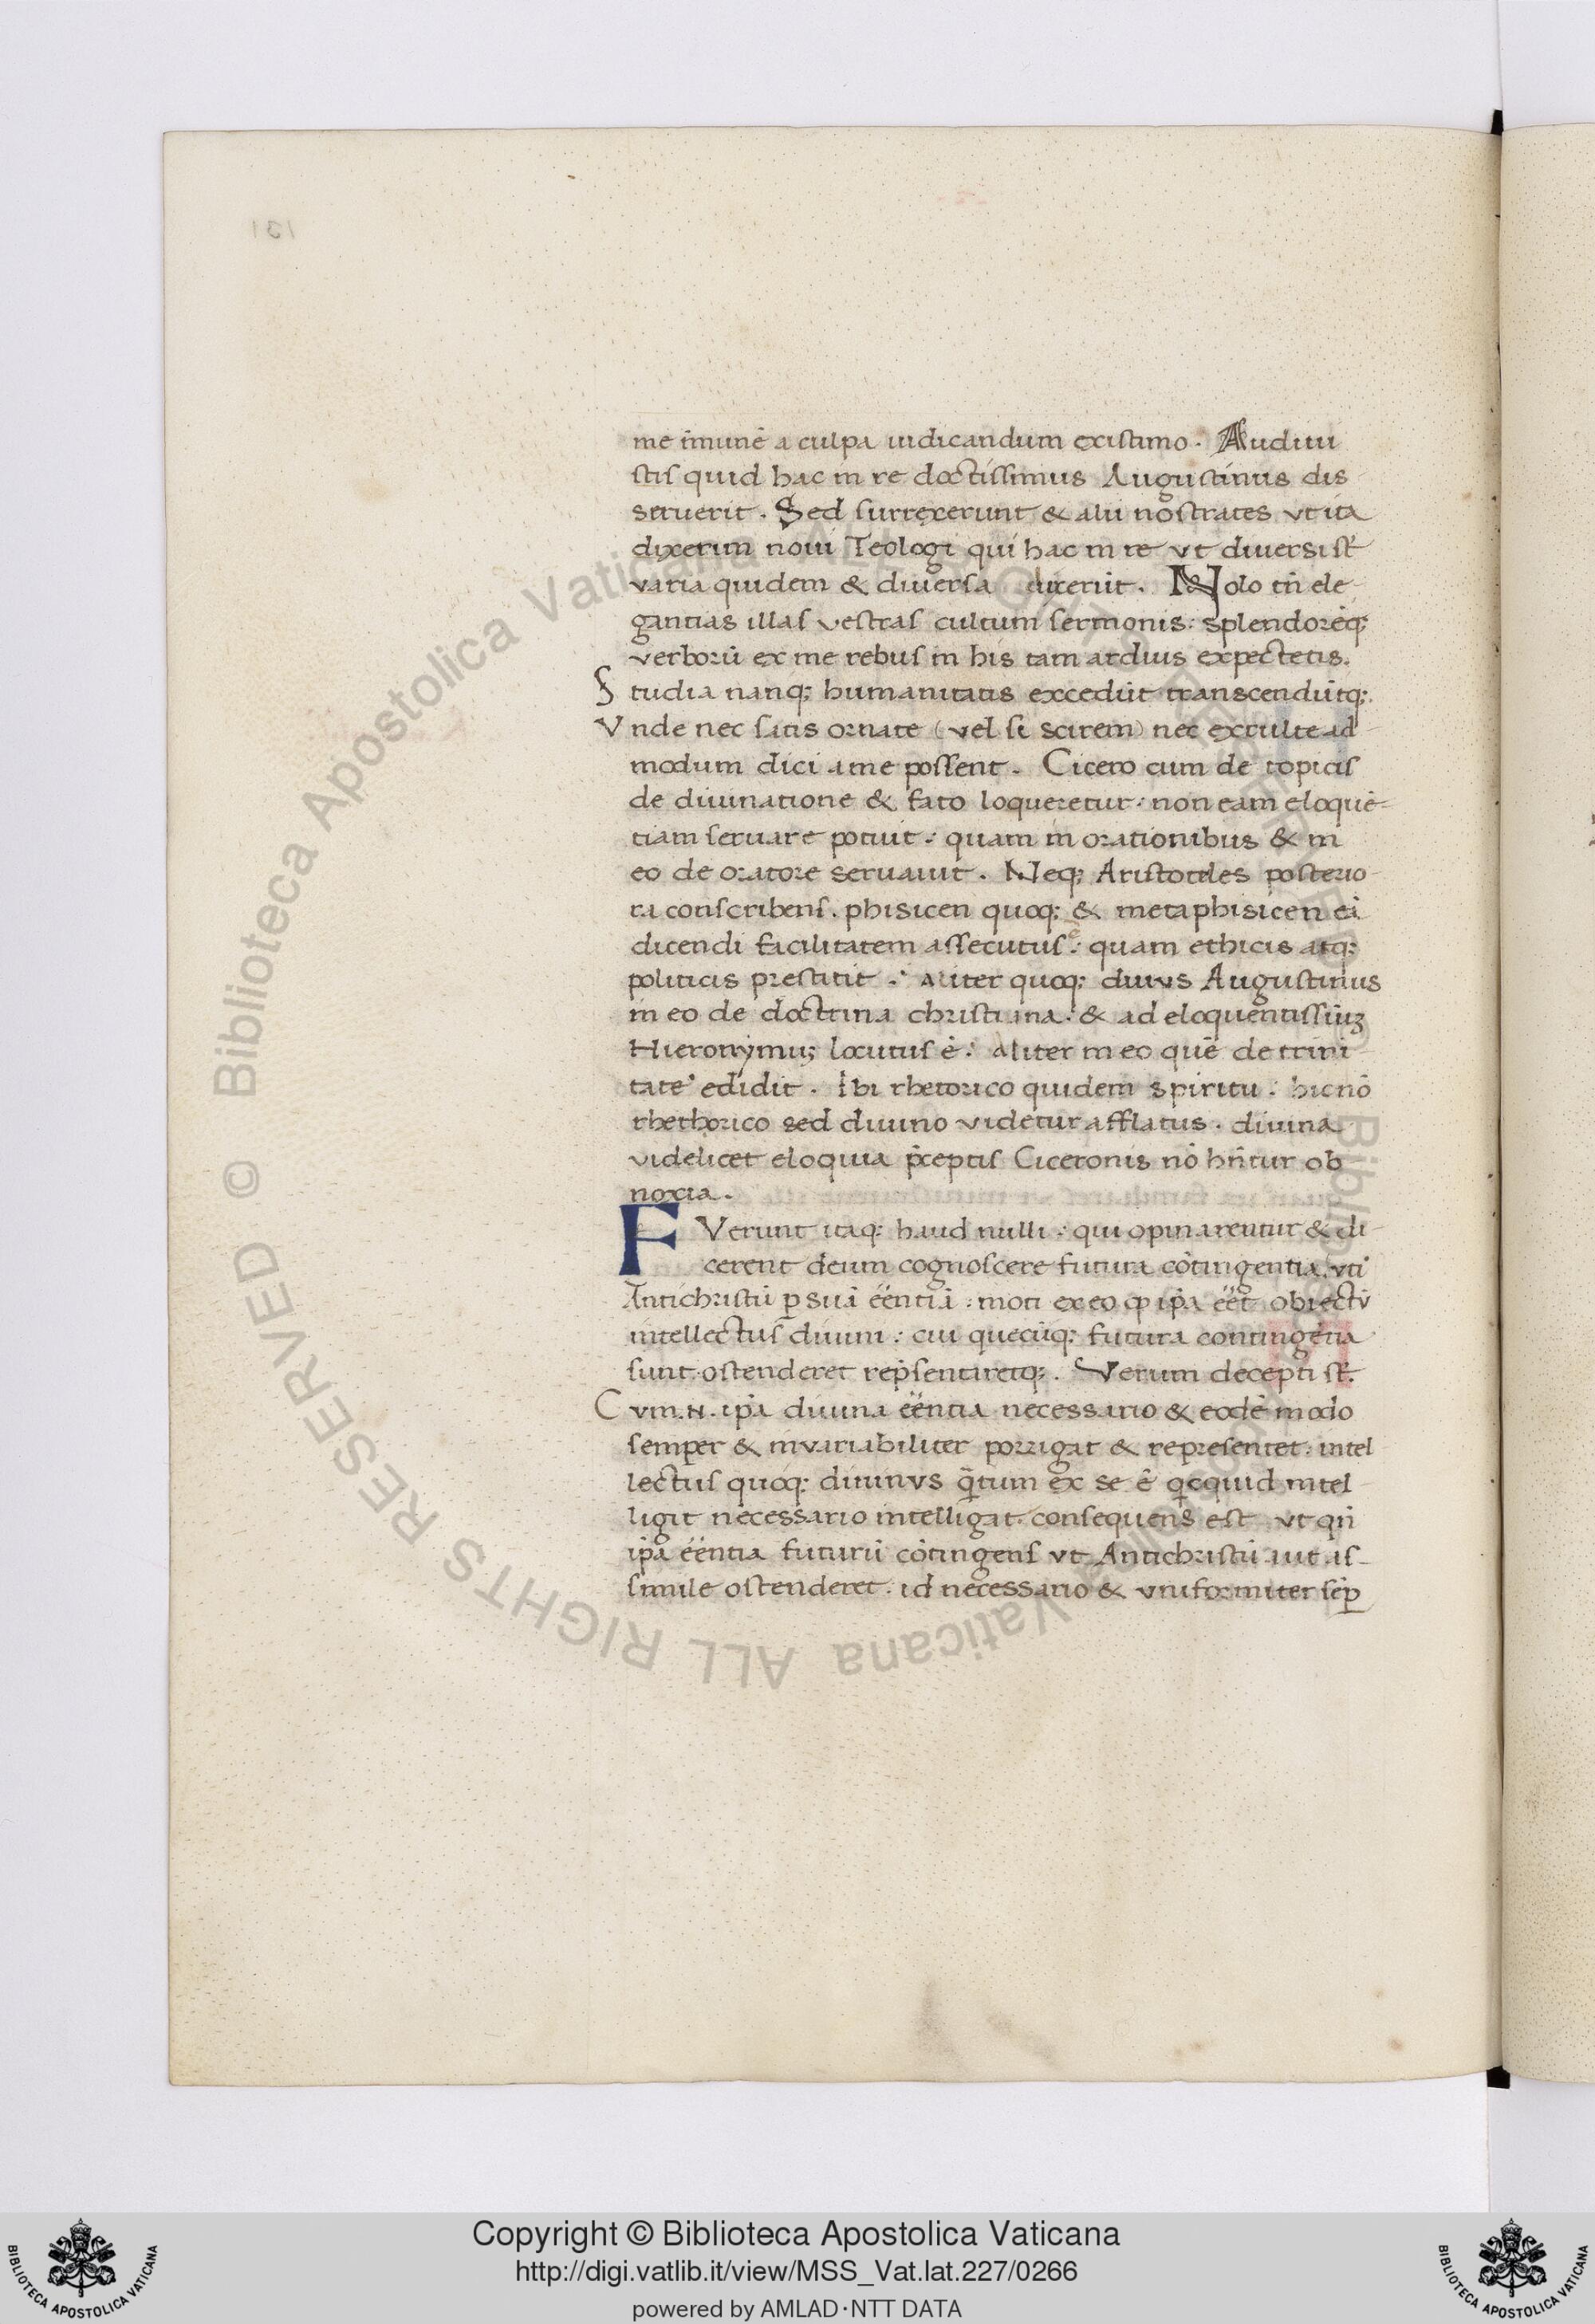 me ímunē a culpa iudicandum existimo. Audiui
stis quid hac in re doctissimus Augustinus dis
seruerit. Sed surrexerunt & alii nostrates vt ita
dixerim noui Teologi qui hac in re vt diuersi st̄
varia quidem & diuersa dixerūt. Nolo tn̄ ele
gantias illas vestras cultum sermonis: splendorēq;
verborū ex me rebus in his tam arduis expectetis.
Studia nanq; humanitatis excedūt transcendūtq;.
Vnde nec satis ornate (vel si scirem) nec exculte ad
modum dici a me possent. Cicero cum de topicis
de diuinatione & fato loqueretur: non eam eloquē-
tiam seruare potuit: quam in orationibus & in
eo de oratore seruauit. Neq; Aristoteles posterio-
ra conscribens. phisicen quoq; & metaphisicen eā
dicendi facilitatem assecutus ē: quam ethicis atq;
politicis prestitit. aliter quoq; diuus Augustinus
in eo de doctrina christiana: & ad eloquentissiūꝫ
Hieronymuꝫ locutus ē: aliter in eo quē de trini-
tate edidit. Ibi rhetorico quidem spiritu: hic nō
rhethorico sed diuino videtur afflatus. diuina
videlicet eloquia p̄ceptis Ciceronis nō hn̄tur ob
noxia.
FVerunt itaq; haud nulli: qui opinarentur & di-
cerent deum cognoscere futura cōtingentia. vti
Antichristū ꝑ suā eēntiā: moti ex eo ꝙ ip̄a eēt obiectū
intellectus diuini: cui quecūq; futura contingētia
sunt: ostenderet rep̄sentaretq;. Verum decepti st̄.
Cvm .N. ip̄a diuina eēntia necessario & eodē modo
semper & invariabiliter porrigat & representet: intel
lectus quoq; diuinvs q̄tum ex se ē q̄cquid intel-
ligit necessario intelligat: consequens est vt qn̄
ip̄a eēntia futurū cōtingens vt Antichristū aut as-
simile ostenderet. id necessario & vniformiter sēꝑ
Copyright © Biblioteca Apostolica Vaticana
http://digi.vatlib.it/view/MSS_Vat.lat.227/0266
powered by AMLAD·NTT DATA
BIBLIOTECA APOSTOLICA VATICANA
BIBLIOTECA APOSTOLICA VATICANA
© Biblioteca Apostolica Vaticana ALL RIGHTS RESERVED
© Biblioteca Apostolica Vaticana ALL RIGHTS RESERVED